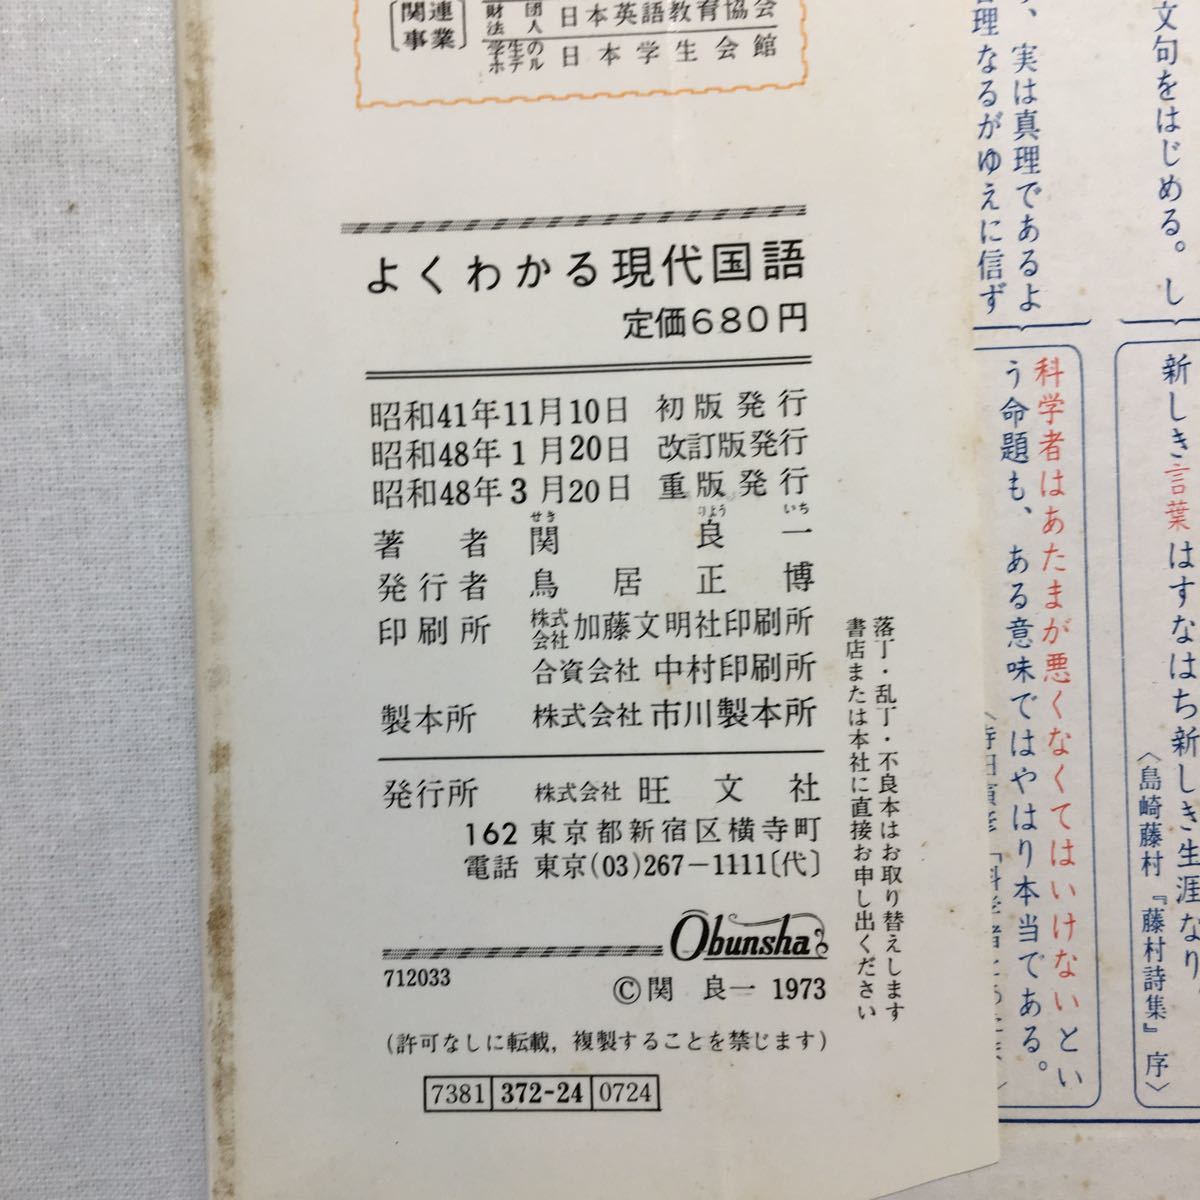 〔関連事業〕
財団法人 日本英語教育協会
学生のホテル 日本学生会館
よくわかる現代国語
定価680円
昭和41年11月10日 初版発行
昭和48年1月20日 改訂版発行
昭和48年3月20日 重版発行
せき りよう いち
著者 関良一
発行者 鳥居正博
印刷所 株式会社 加藤文明社印刷所
合資会社 中村印刷所
製本所 株式会社 市川製本所
発行所 株式会社 旺文社
162 東京都新宿区横寺町
電話 東京(03)267-1111〔代〕
Obunsha
712033
©関 良一 1973
(許可なしに転載,複製することを禁じます)
7381 372-24 0724
落丁・乱丁・不良本はお取り替えします
書店または本社に直接お申し出ください
文句をはじめる。し
、実は真理であるよ
理なるがゆえに信ず
新しき言葉はすなはち新しき生涯なり。
〈島崎藤村『藤村詩集』序〉
科学者はあたまが悪くなくてはいけないとい
う命題も、ある意味ではやはり本当である。